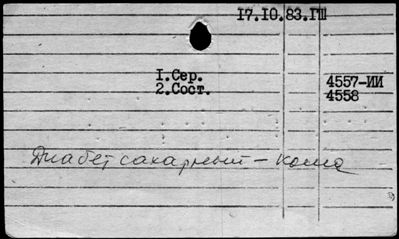 17.10.83.ГШ
1.Сер. 4557-ИИ
2.Сост. 4558
Диабет сахарный - кома